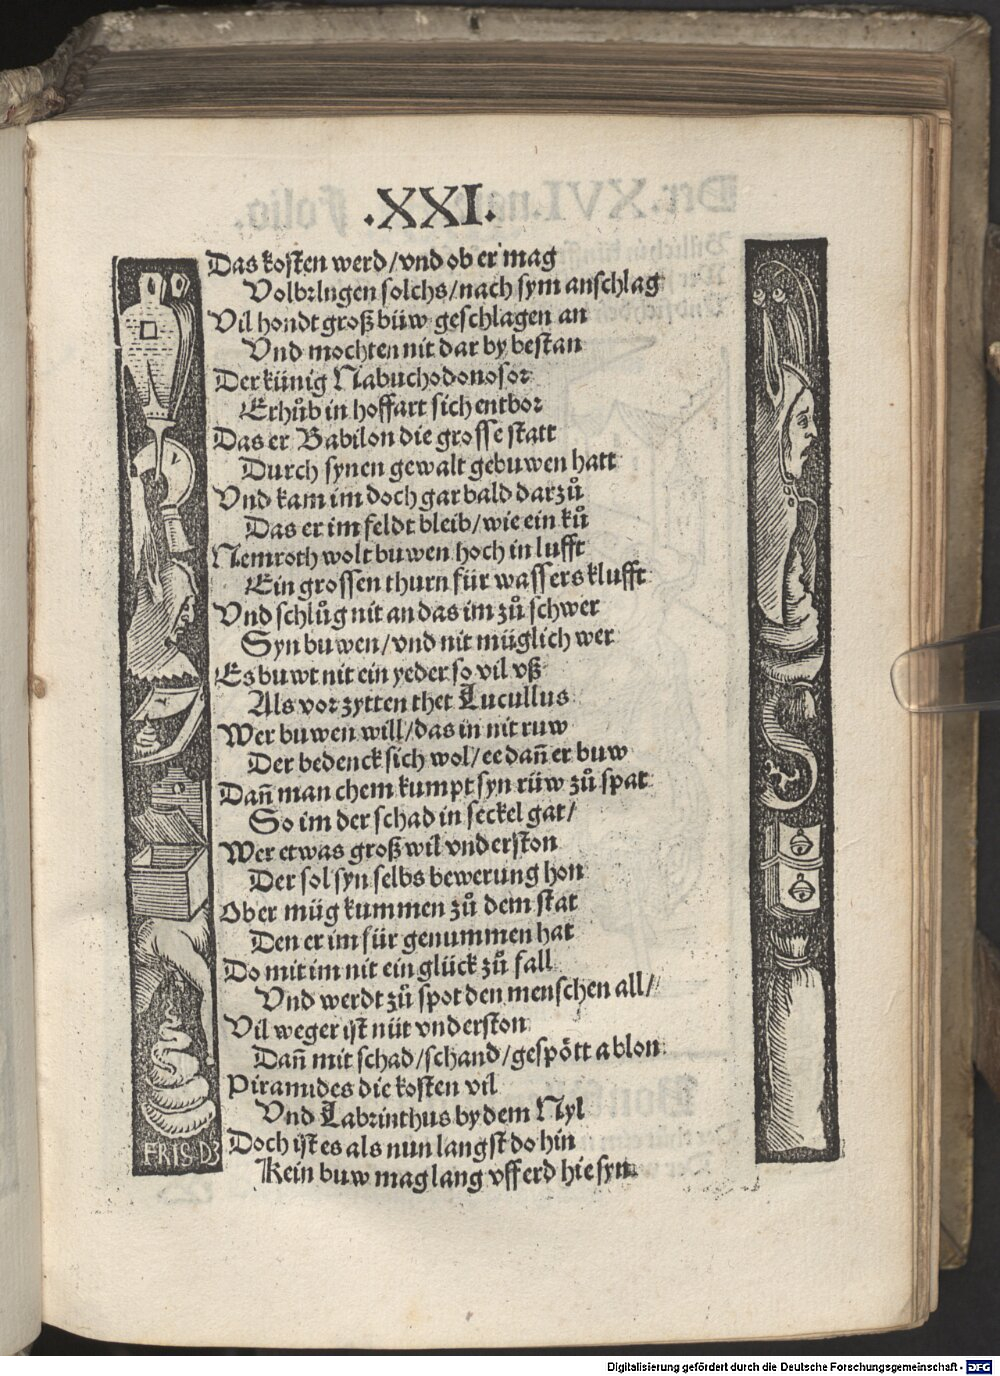 .XXI.
Das kosten werd/vnd ob er mag
Volbringen solchs/nach sym anschlag
Vil hondt groß büw geschlagen an
Vnd mochten nit dar by bestan
Der künig Nabuchodonosor
Erhůb in hoffart sich entbor
Das er Babilon die grosse statt
Durch synen gewalt gebuwen hatt
Vnd kam im doch gar bald darzů
Das er im feldt bleib/wie ein ků
Nemroth wolt buwen hoch in lufft
Ein grossen thurn für wassers klufft
Vnd schlůg nit an das im zů schwer
Syn buwen/vnd nit müglich wer
Es buwt nit ein yeder so vil vß
Als vor zytten thet Lucullus
Wer buwen will/das in nit ruw
Der bedenck sich wol/ee dan̄ er buw
Dan̄ man chem kumpt syn rüw zů spat
So im der schad in seckel gat/
Wer etwas groß wil vnderston
Der sol syn selbs bewerung hon
Ob er müg kummen zů dem stat
Den er im für genummen hat
Do mit im nit ein glück zů fall
Vnd werdt zů spot den menschen all/
Vil weger ist nüt vnderston
Dan̄ mit schad/schand/gespött ablon
Piramides die kosten vil
Vnd Labrinthus by dem Nyl
Doch ist es als nun langst do hin
Kein buw mag lang vff erd hie syn
FRIS D3
Digitalisierung gefördert durch die Deutsche Forschungsgemeinschaft - DFG